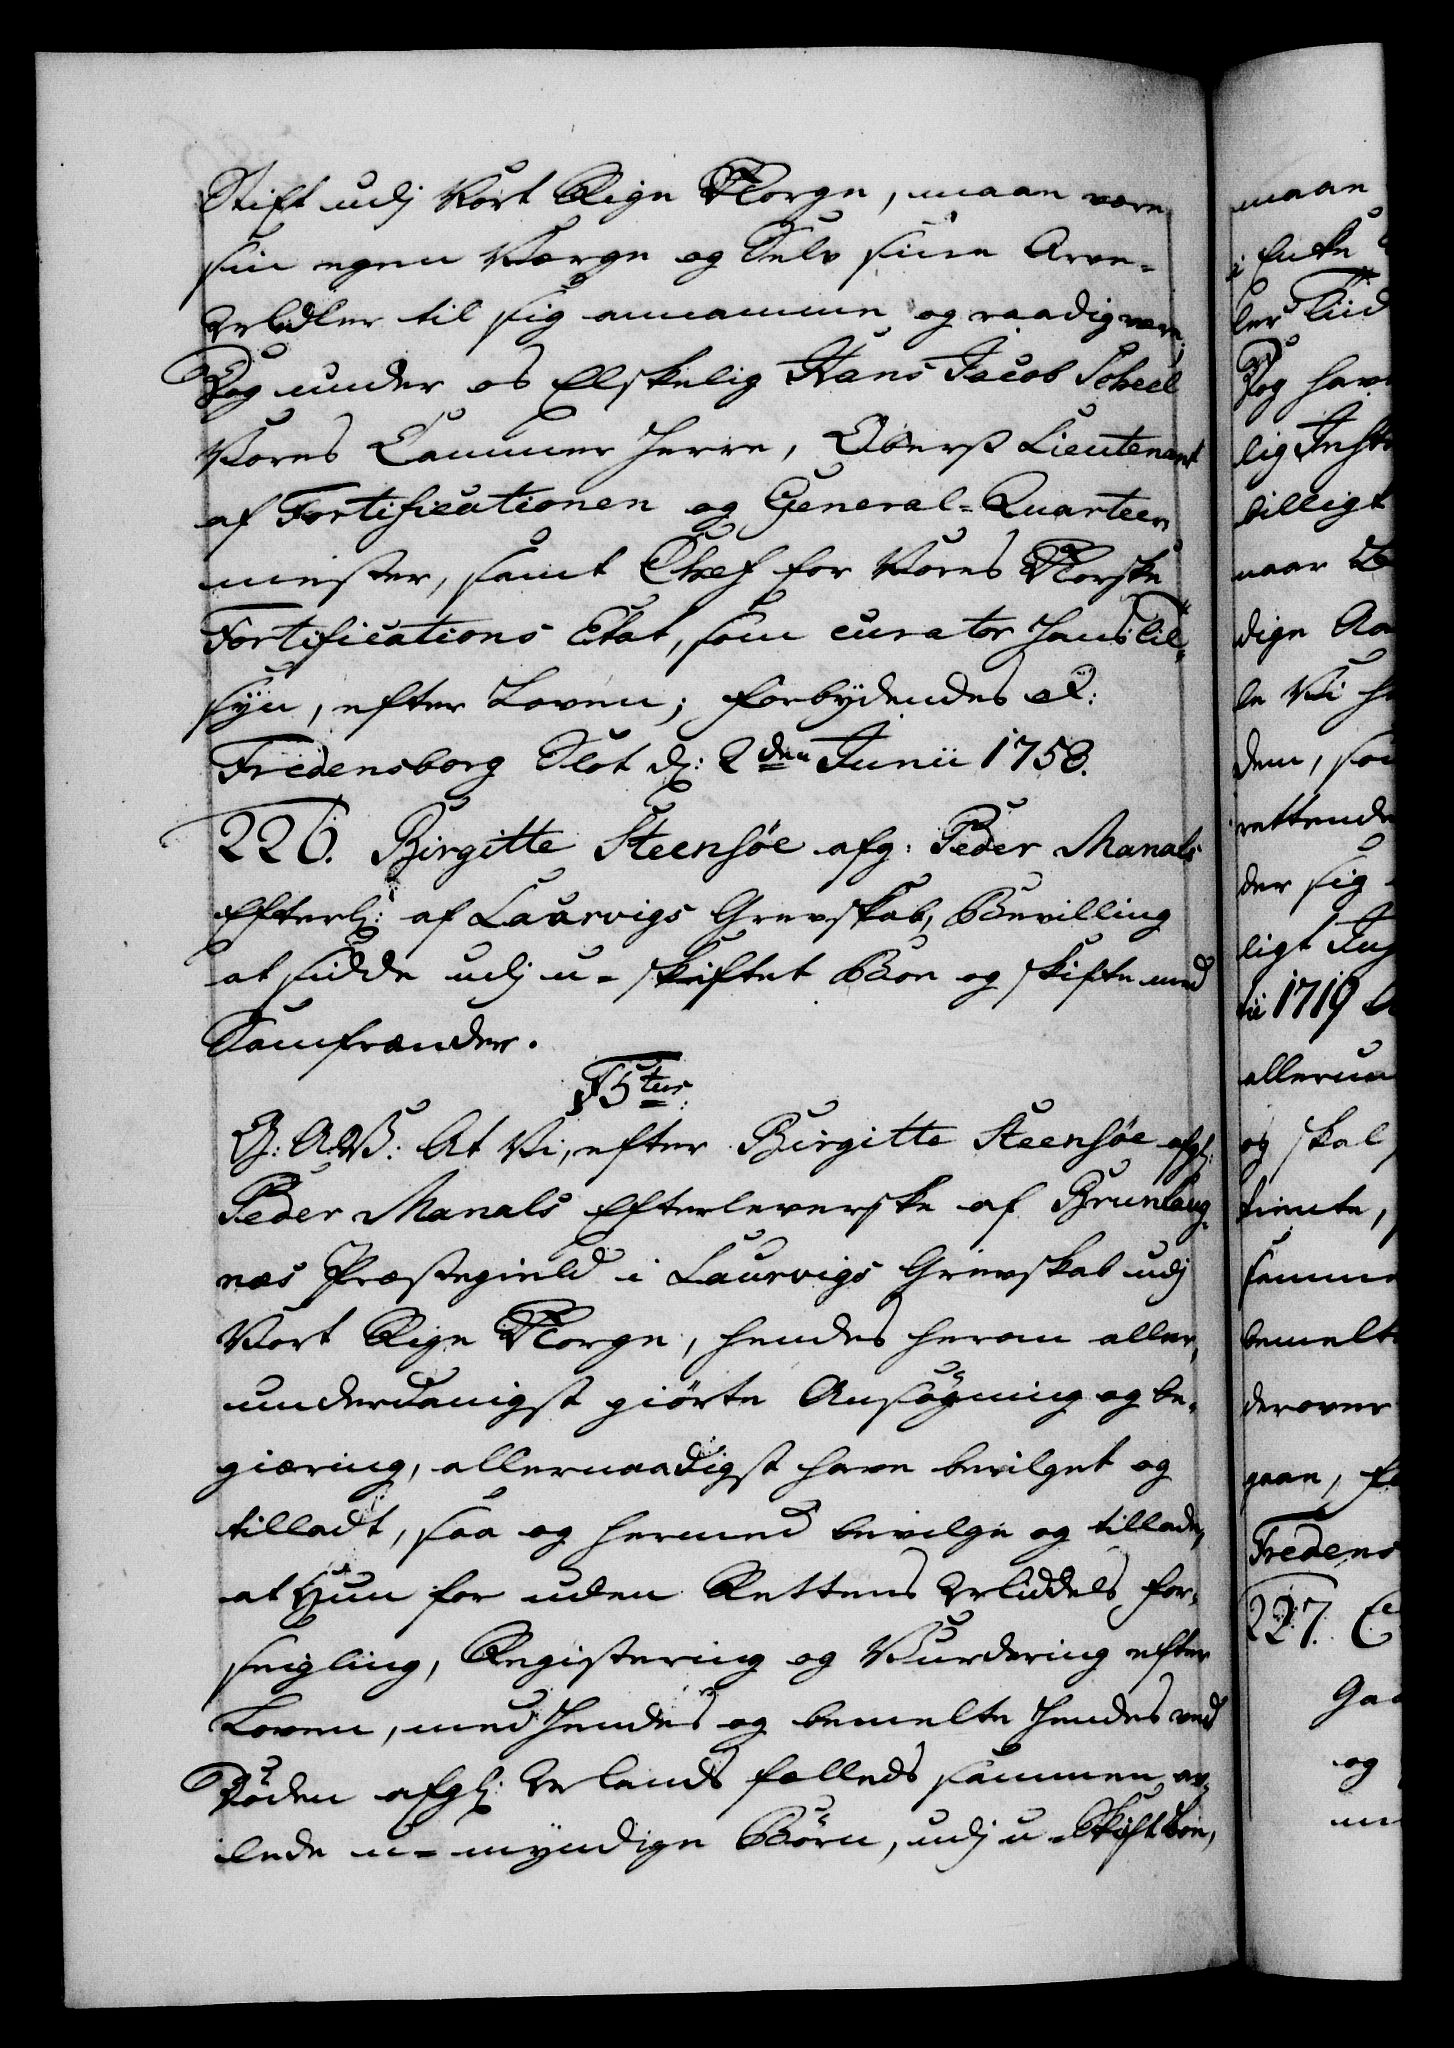 Stift udj Vort Rige Norge, maae være
sin egen Værge og Selv sine Arve-
Midler til sig annamme og raadig være;
Dog under os Elskelig Hans Jacob Scheel
Vores Cammer Herre, Oberst Lieutenant
af Fortificationen og General-Quarteer
mester, samt Chef for Vores Norske
Fortifications Etat, som curator Hans Til-
syn, efter Loven; forbydendes &:
Fredensborg Slot d: 2den Junii 1758.
226. Birgitte Steensøe afg: Peder Manals
Efterl: af Laurvigs Grevskab, Bevilling
at sidde udj u-skiftet Boe og skifte med
Samfrænder.
F5tus:
G: A: V: At Vi, efter Birgitte Steensøe afg:
Peder Manals Efterleverske af Brunlaug-
næs Præstegield i Laurvigs Grevskab udj
Vort Rige Norge, hendes herom aller-
underdanigst giørte Ansøgning og be-
giæring, allernaadigst have bevilget og
tilladt, saa og hermed bevilge og tillade,
at Hun for uden Rettens Middels for-
seigling, Registering og Vurdering efter
Loven, med Hendes og bemelte Hendes ved
Døden afg: Mands fælleds sammen av-
lede u-myndige Børn, udj u-Skift Boe,
maae
i Enke
ler Tiid
Dog have
lig
billigt
naar
dige
le Vi
dem, som
rettende
der sig
ligt
1719
allerun
og skal
tiente,
samme
bemelte
derover
gaae,
Fredens
227.
og